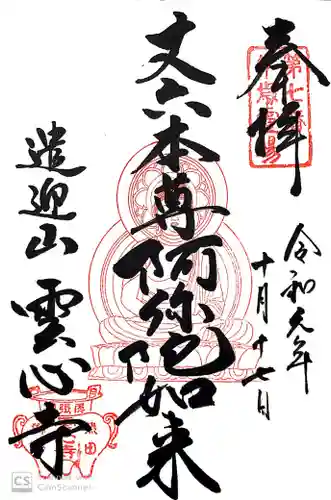 奉拝
令和元年
十月十七日
丈六本尊阿弥陀如来
遣迎山 雲心寺
CS CamScanner